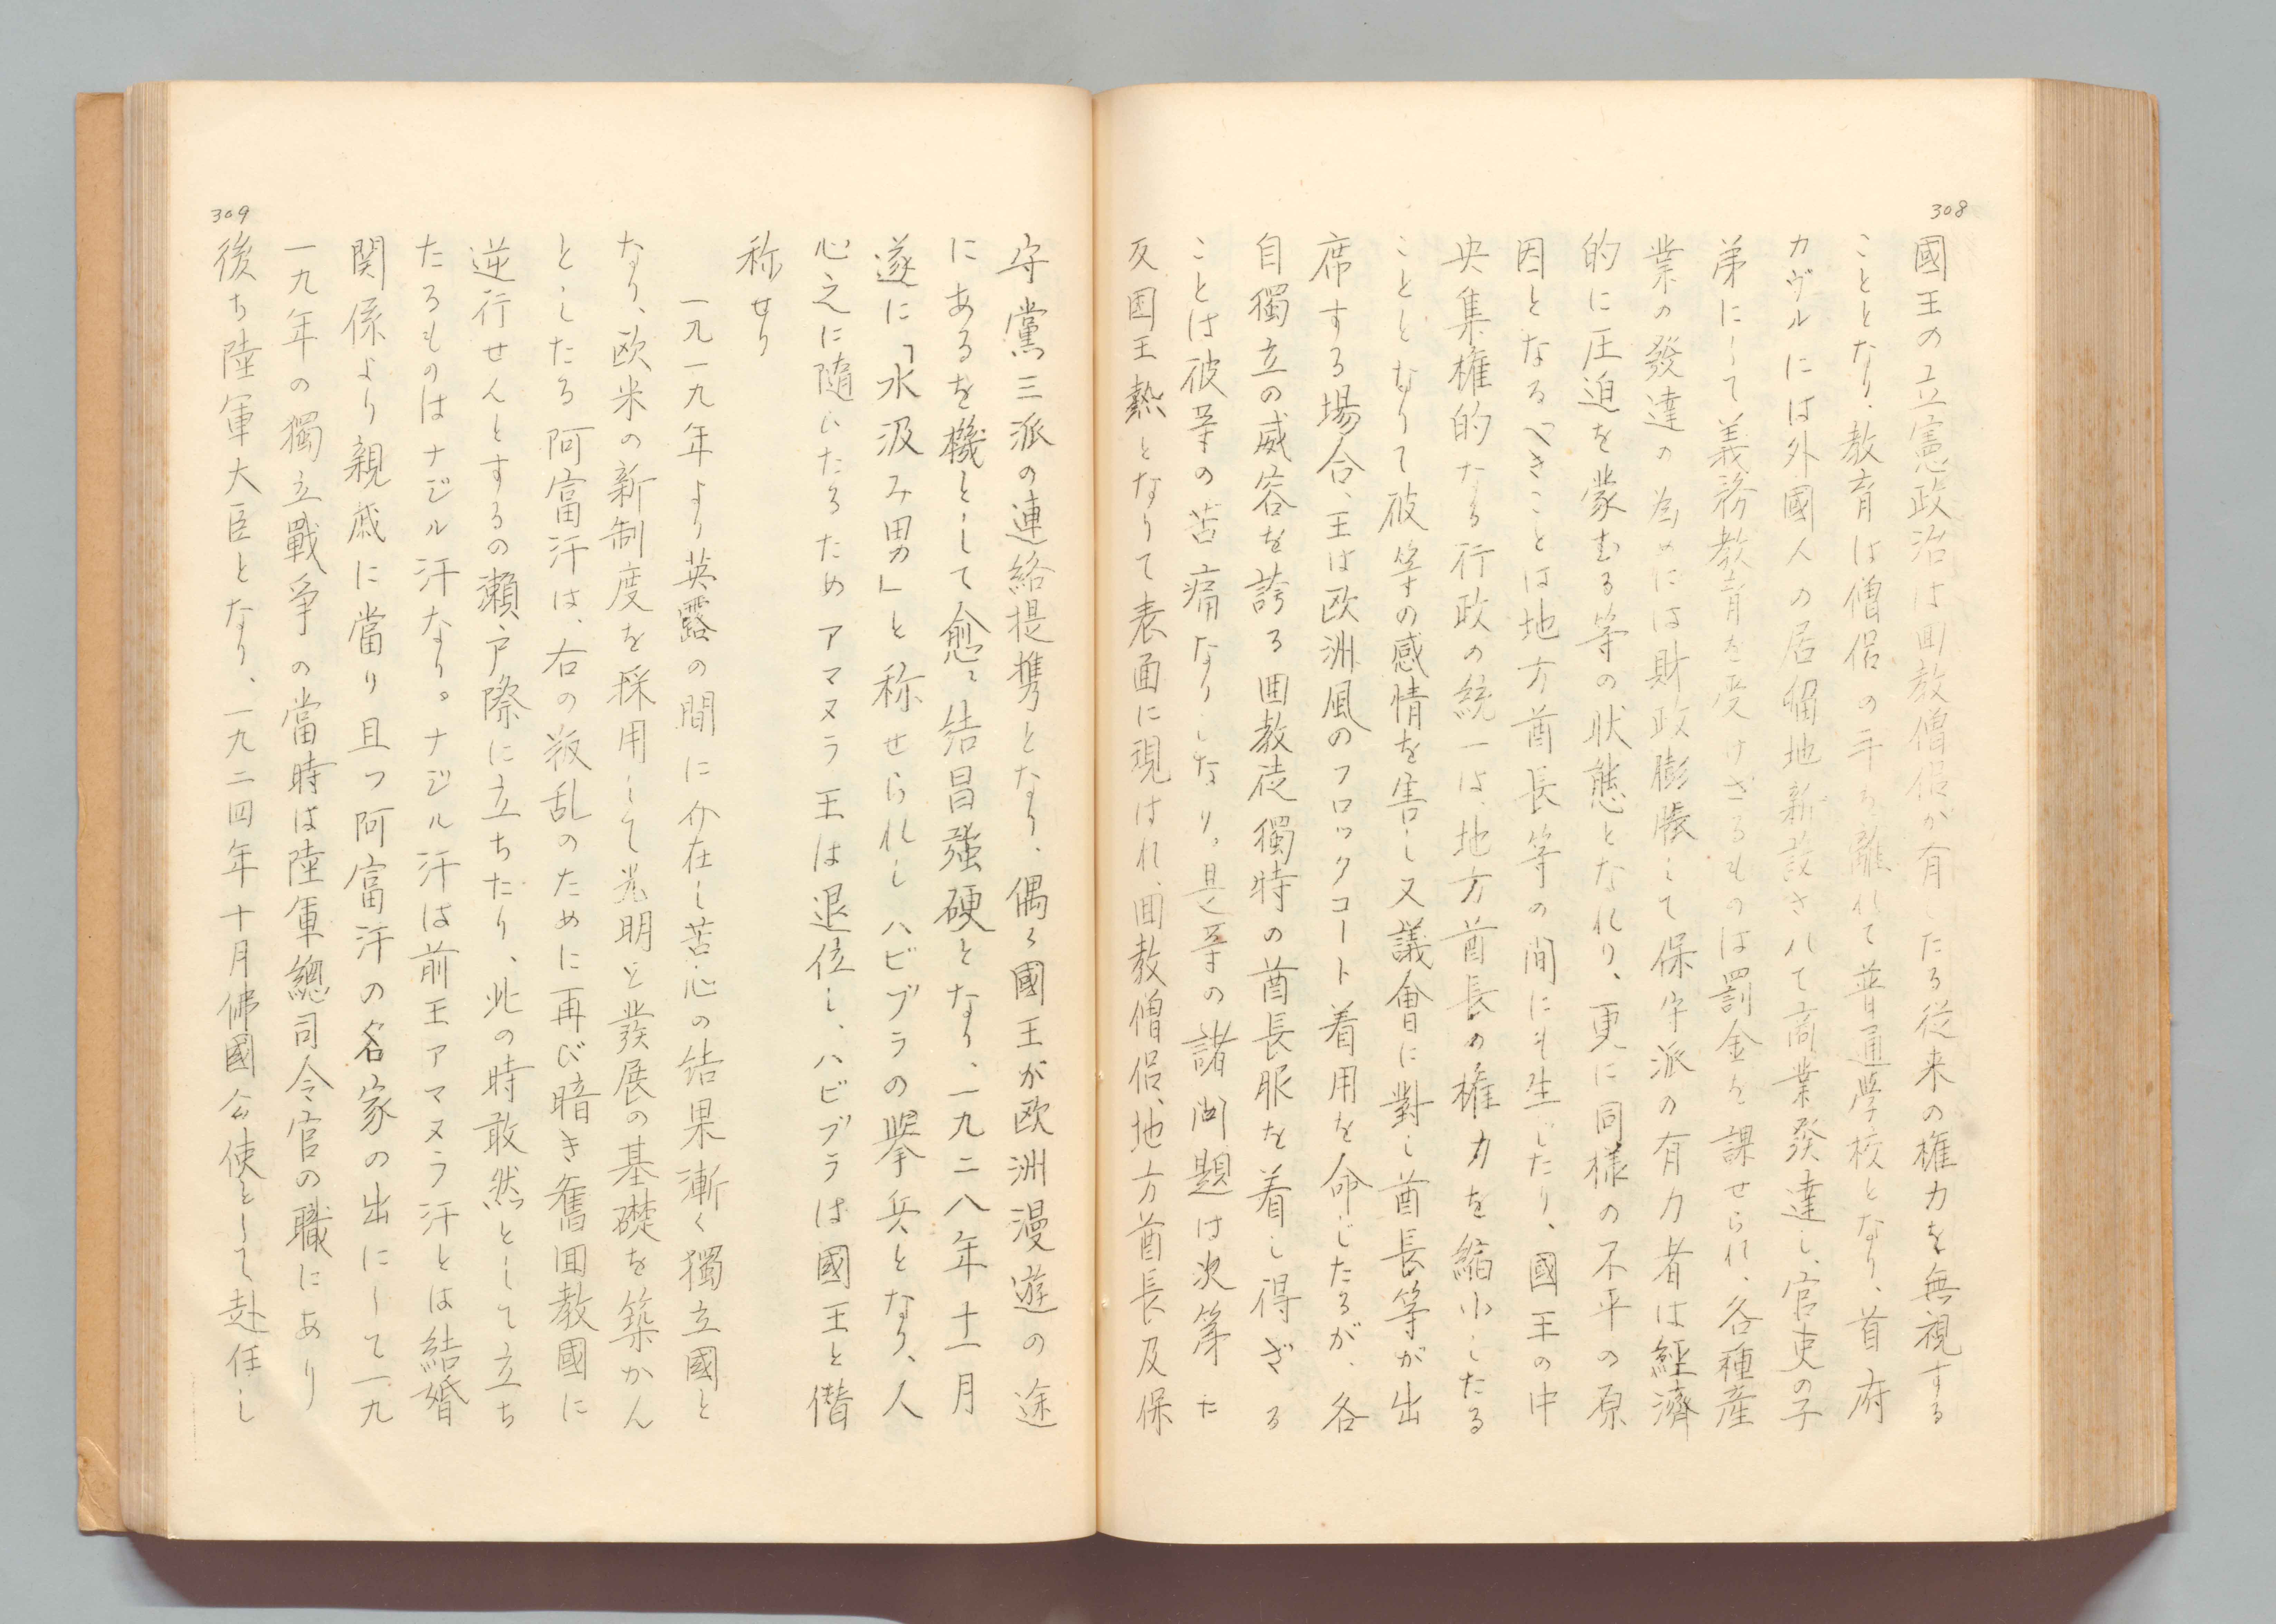 308
國王の立憲政治は回教僧侶が有したる従来の権力を無視する
こととなり、教育は僧侶の手を離れて普通学校となり、首府
カヴルには外國人の居留地新設されて商業発達し、官吏の子
弟にして義務教育を受けざるものは罰金を課せられ、各種産
業の發達の為めには財政膨脹して保守派の有力者は経濟
的に圧迫を蒙むる等の状態となれり、更に同様の不平の原
因となるべきことは地方酋長等の間にも生じたり、國王の中
央集権的なる行政の統一は、地方酋長の権力を縮小したる
こととなりて彼等の感情を害し又議會に對し酋長等が出
席する場合、王は欧洲風のフロックコート着用を命じたるが、各
自獨立の威容を誇る回教徒獨特の酋長服を着し得ざる
ことは彼等の苦痛なりしなり。是等の諸問題は次第た
反国王熱となりて表面に現はれ、回教僧侶、地方酋長及保
守黨三派の連絡提携となり、偶々國王が欧洲漫遊の途
にあるを機として愈々結昌強硬となり、一九二八年十一月
遂に「水汲み男」と称せられしハビブラの擧兵となり、人
心之に隨ひたるためアマヌラ王は退位し、ハビブラは國王と僭
称せり
一九一九年より英露の間に介在し苦心の結果漸く獨立國と
なり、欧米の新制度を採用して光明と發展の基礎を築かん
としたる阿富汗は、右の叛乱のために再び暗き舊回教國に
逆行せんとするの瀬戸際に立ちたり、此の時敢然として立ち
たるものはナジル汗なり。ナジル汗は前王アマヌラ汗とは結婚
関係より親戚に當り且つ阿富汗の名家の出にして一九
一九年の獨立戰爭の當時は陸軍總司令官の職にあり
後ち陸軍大臣となり、一九二四年十月佛國公使として赴任し
309